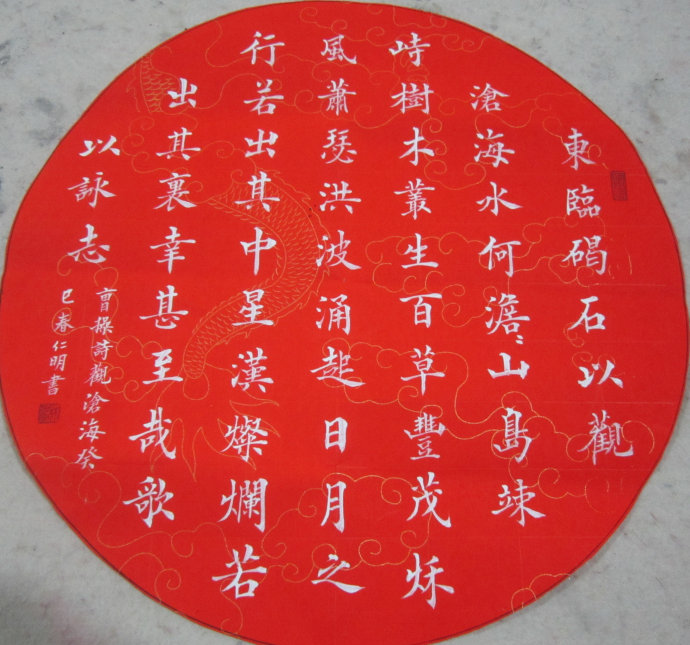 東臨碣石以觀
滄海水何澹〻山島竦
峙樹木叢生百草豐茂秌
風蕭瑟洪波涌起日月之
行若出其中星漢燦爛若
出其裏幸甚至哉歌
以詠志
曹操詩觀滄海癸
巳春仁明書